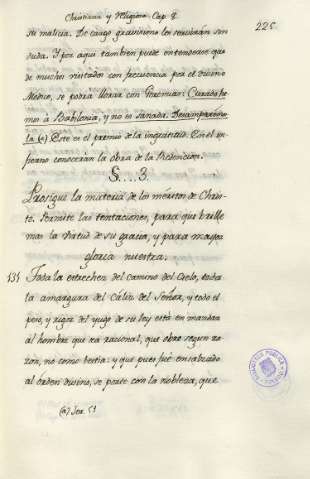 Christiana y Religiosa Cap. 8.
225
su malicia. De cargo gravisimo les servirán sin
duda. Y por aqui tambien puede entenderse que
de muchos visitados con frecuencia por el divino
Medico, se podra llorar con Geremias: Curado he
mos à Babilonia, y no es sanada. Desamparémos
la (a). Este es el premio de la ingratitud. En el in
fierno conoceran la obra de la Redencion.
§...3.
Prosigue la materia de los méritos de Chris-
to. Permite las tentaciones, para que brille
mas la virtud de su gracia, y para mayor
gloria nuestra.
131 Toda la estrechez del camino del Cielo, toda
la amargura del cáliz del Señor, y todo el
peso, y rigor del yugo de su ley está en mandar
al hombre que sea racional, que obre segun ra
zon, no como bestia: y que pues fué ensalzado
al órden divino, se porte con la nobleza, que
(a) Jer. 51